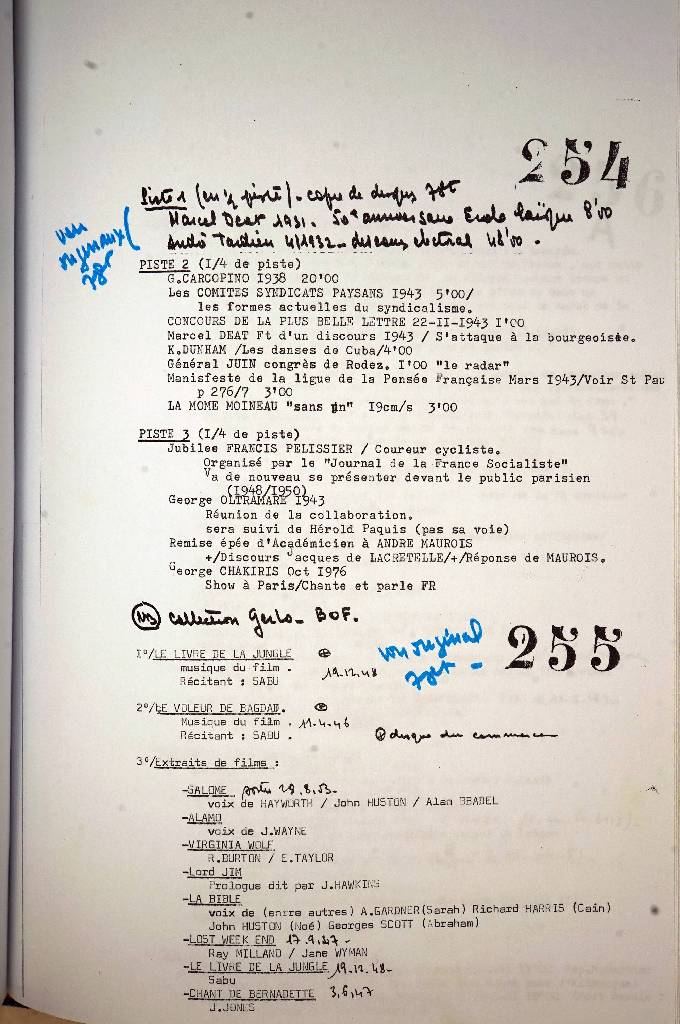 254
Piste 1 (en 1/2 piste) - copie de disques 78t
Marcel Deat 1931. 50e anniversaire Ecole laïque 8'00
André Tardieu 4/1932 - discours electoral 48'00.
voir
originaux
78t
PISTE 2 (I/4 de piste)
G.CARCOPINO I938 20'00
Les COMITES SYNDICATS PAYSANS I943 5'00/
les formes actuelles du syndicalisme.
CONCOURS DE LA PLUS BELLE LETTRE 22-II-I943 I'00
Marcel DEAT Ft d'un discours I943 / S'attaque à la bourgeoisie.
K.DUNHAM /Les danses de Cuba/4'00
Général JUIN congrès de Rodez. I'00 "le radar"
Manisfeste de la ligue de la Pensée Française Mars I943/Voir St Pau
p 276/7 3'00
LA MOME MOINEAU "sans un" I9cm/s 3'00
PISTE 3 (I/4 de piste)
Jubilee FRANCIS PELISSIER / Coureur cycliste.
Organisé par le "Journal de la France Socialiste"
Va de nouveau se présenter devant le public parisien
(I948/I950)
George OLTRAMARE I943
Réunion de la collaboration.
sera suivi de Hérold Paquis (pas sa voie)
Remise épée d'Académicien à ANDRE MAUROIS
+/Discours Jacques de LACRETELLE/+/Réponse de MAUROIS.
George CHAKIRIS Oct I976
Show à Paris/Chante et parle FR
NB collection - BOF.
voir original
78t -
255
1°/LE LIVRE DE LA JUNGLE
musique du film . 19.12.48
Récitant : SABU
2°/LE VOLEUR DE BAGDAD.
Musique du film . 11.4.46
Récitant : SABU .
disque du commerce
3°/Extraits de films :
-SALOME sortie 28.8.53-
voix de HAYWORTH / John HUSTON / Alan BEADEL
-ALAMO
voix de J.WAYNE
-VIRGINIA WOLF
R.BURTON / E.TAYLOR
-Lord JIM
Prologue dit par J.HAWKINS
-LA BIBLE
voix de (entre autres) A.GARDNER(Sarah) Richard HARRIS (Cain)
John HUSTON (Noé) Georges SCOTT (Abraham)
-LOST WEEK END 17.9.47-
Ray MILLAND / Jane WYMAN
-LE LIVRE DE LA JUNGLE 19.12.48-
Sabu
-CHANT DE BERNADETTE 3,6,47
J.JONES